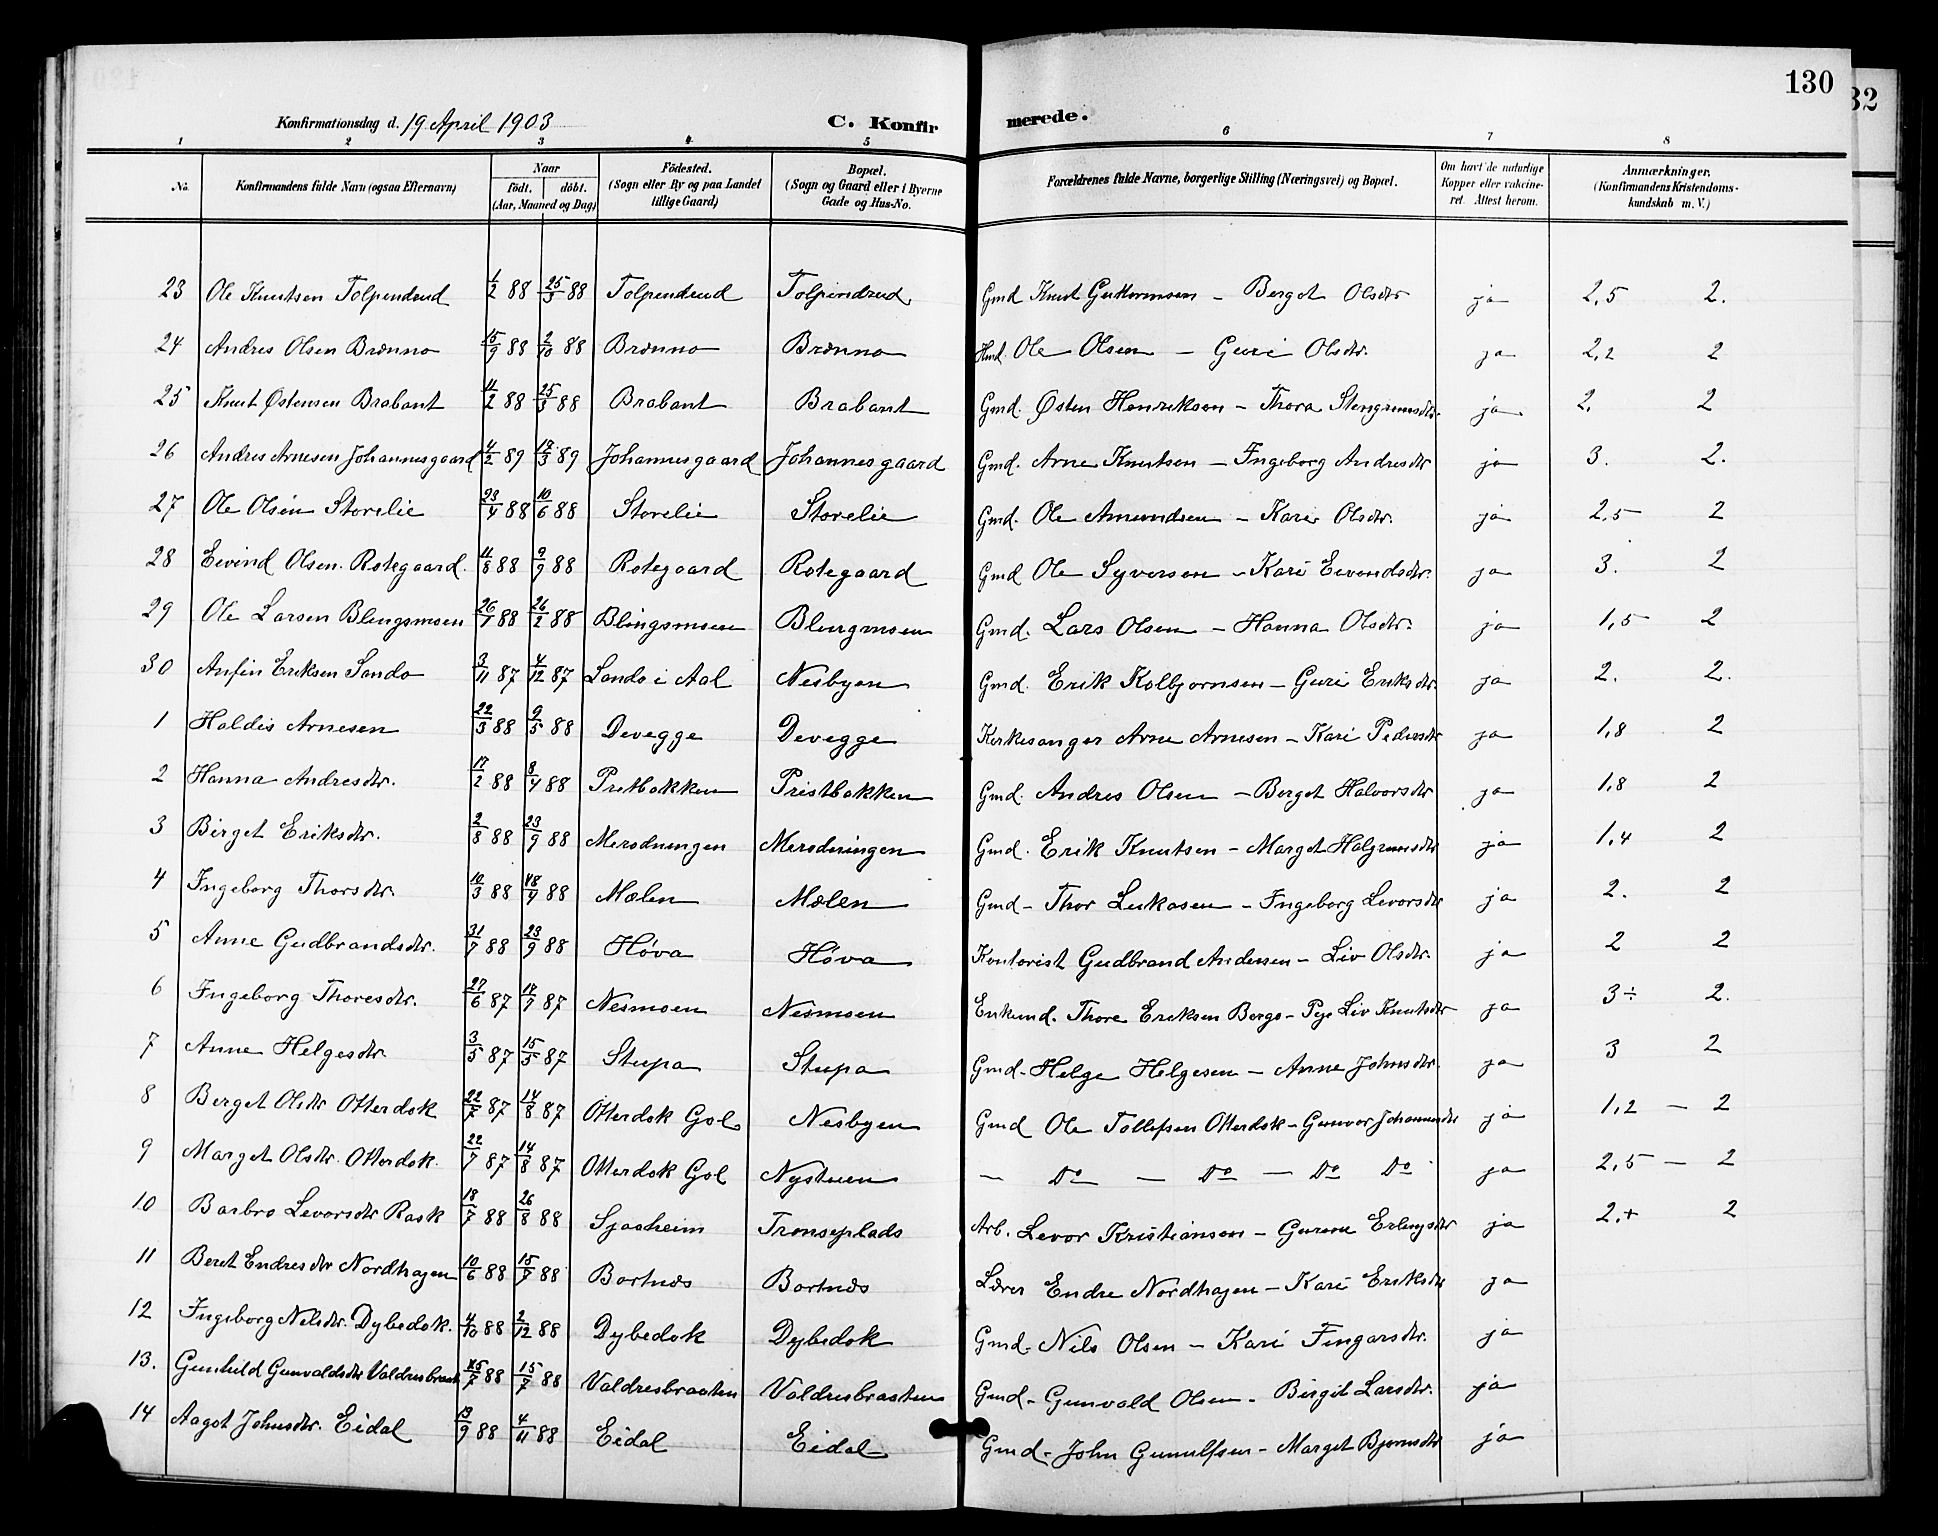 130
32
Konfirmationsdag d. 19 April 1903 C. Konfirmerede.
1 2 3 4 5 6 7 8
No. Konfirmandens fulde Navn (ogsaa Efternavn) Naar født. døbt. (Aar, Maaned og Dag) Fødested. (Sogn eller By og paa Landet tillige Gaard) Bopæl. (Sogn og Gaard eller i Byerne Gade og Hus-No. Forældrenes fulde Navne, borgerlige Stilling (Næringsvei) og Bopæl. Om havt de naturlige Kopper eller vakcineret. Attest herom. Anmærkninger. (Konfirmandens Kristendomskundskab m. V.)
23 Ole Knutsen Tolpendrud 1/2 88 25/3 88 Tolpendrud Tolpendrud Gmd Knut Guttormsen - Berget Olsdtr ja 2,5 2.
24 Andres Olsen Brænno 15/9 88 2/10 88 Brænno Brænno Hmd. Ole Olsen - Guri Olsdtr. ja 2,2 2
25 Knut Østensen Brabant 11/2 88 25/3 88 Brabant Brabant Gmd. Østen Henriksen - Thora Stengrimsdtr. ja 2. 2
26 Andres Arnesen Johannesgaard 4/2 89 Johannesgaard Johannesgaard Gmd. Arne Knutsen - Ingeborg Andresdtr ja 3. 2.
27 Ole Olsen Storelie 23/4 88 10/6 88 Storelie Storelie Gmd. Ole Amundsen - Kari Olsdtr. ja 2,5 2
28 Eivind Olsen Rotegaard. 88 9/9 88 Rotegaard Rotegaard Gmd Ole Syversen - Kari Eivendsdtr. ja 3. 2
29 Ole Larsen Blengsmoen 26/1 88 26/2 88 Blingsmoen Blengmoen Gmd. Lars Olsen - Hanna Olsdtr. ja 1,5 2
30 Anfin Eriksen Sando 3/11 87 4/12 87 Sando i Aal Nesbyen Gmd. Erik Kolbjørnsen - Guri Eriksdtr. ja 2. 2.
1 Haldis Arnesen 22/3 88 9/5 88 Devegge Devegge Kirkesanger Arne Arnesen - Kari Pedersdtr ja 1,8 2
2 Hanna Andresdtr. 17/2 88 8/4 88 Pretbakken Pristbakken Gmd. Andres Olsen - Berget Halvorsdtr ja 1,8 2
3 Birget Eriksdtr. 2/8 88 23/9 88 Merodningen Merodningen Gmd. Erik Knutsen - Marget Halgrimsdtr ja 1,4 2
4 Ingeborg Thorsdtr. 10/3 88 88 Mælen Mælen Gmd - Thor Lukasen - Ingeborg Levorsdtr ja 2. 2
5 Anne Gudbrandsdtr. 31/7 88 23/9 88 Høva Høva Kontorist Gudbrand Andersen - Liv Olsdtr. ja 2 2
6 Ingeborg Thoresdtr. 27/6 87 17/7 87 Nesmoen Nesmoen Enkemd. Thore Eriksen Bergo - Pige Liv Knutsdtr ja 3÷ 2.
7 Anne Helgesdtr. 3/5 87 15/5 87 Stupa Stupa Gmd - Helge Helgesen - Anne Johnsdtr. ja 3 2
8 Berget Olsdtr Otterdok 22/7 87 14/8 87 Otterdok Gol Nesbyen Gmd Ole Tollefsen Otterdok - Gunvor Johannesdtr ja 1,2 - 2
9 Marget Olsdtr. Otterdok. 22/7 87 14/8 87 Otterdok Gol Nystuen - Do - Do - Do Do ja 2,5 - 2
10 Barbro Levorsdtr Rask 18/7 88 26/8 88 Sjaaheim Tronseplads Arb. Levor Kristiansen - Gurine Erlingsdtr ja 2.+ 2
11 Beret Endresdtr Nordhagen 10/6 88 15/7 88 Bortnæs Bortnæs Lærer Endre Nordhagen - Kari Eriksdtr ja
12 Ingeborg Nelsdtr. Dybedok. 4/10 88 2/12 88 Dybedok Dybedok Gmd. Nils Olsen - Kari Fingarsdtr. ja
13. Gunhild Gunvaldsdtr Valdresbraaten 88 15/7 88 Valdresbraaten Valdresbraaten Gmd - Gunvald Olsen - Birgit Larsdtr. ja
14 Aagot Johnsdtr. Eidal 13/9 88 4/11 88 Eidal Eidal Gmd - John Gunulfsen - Marget Bjørnsdtr ja